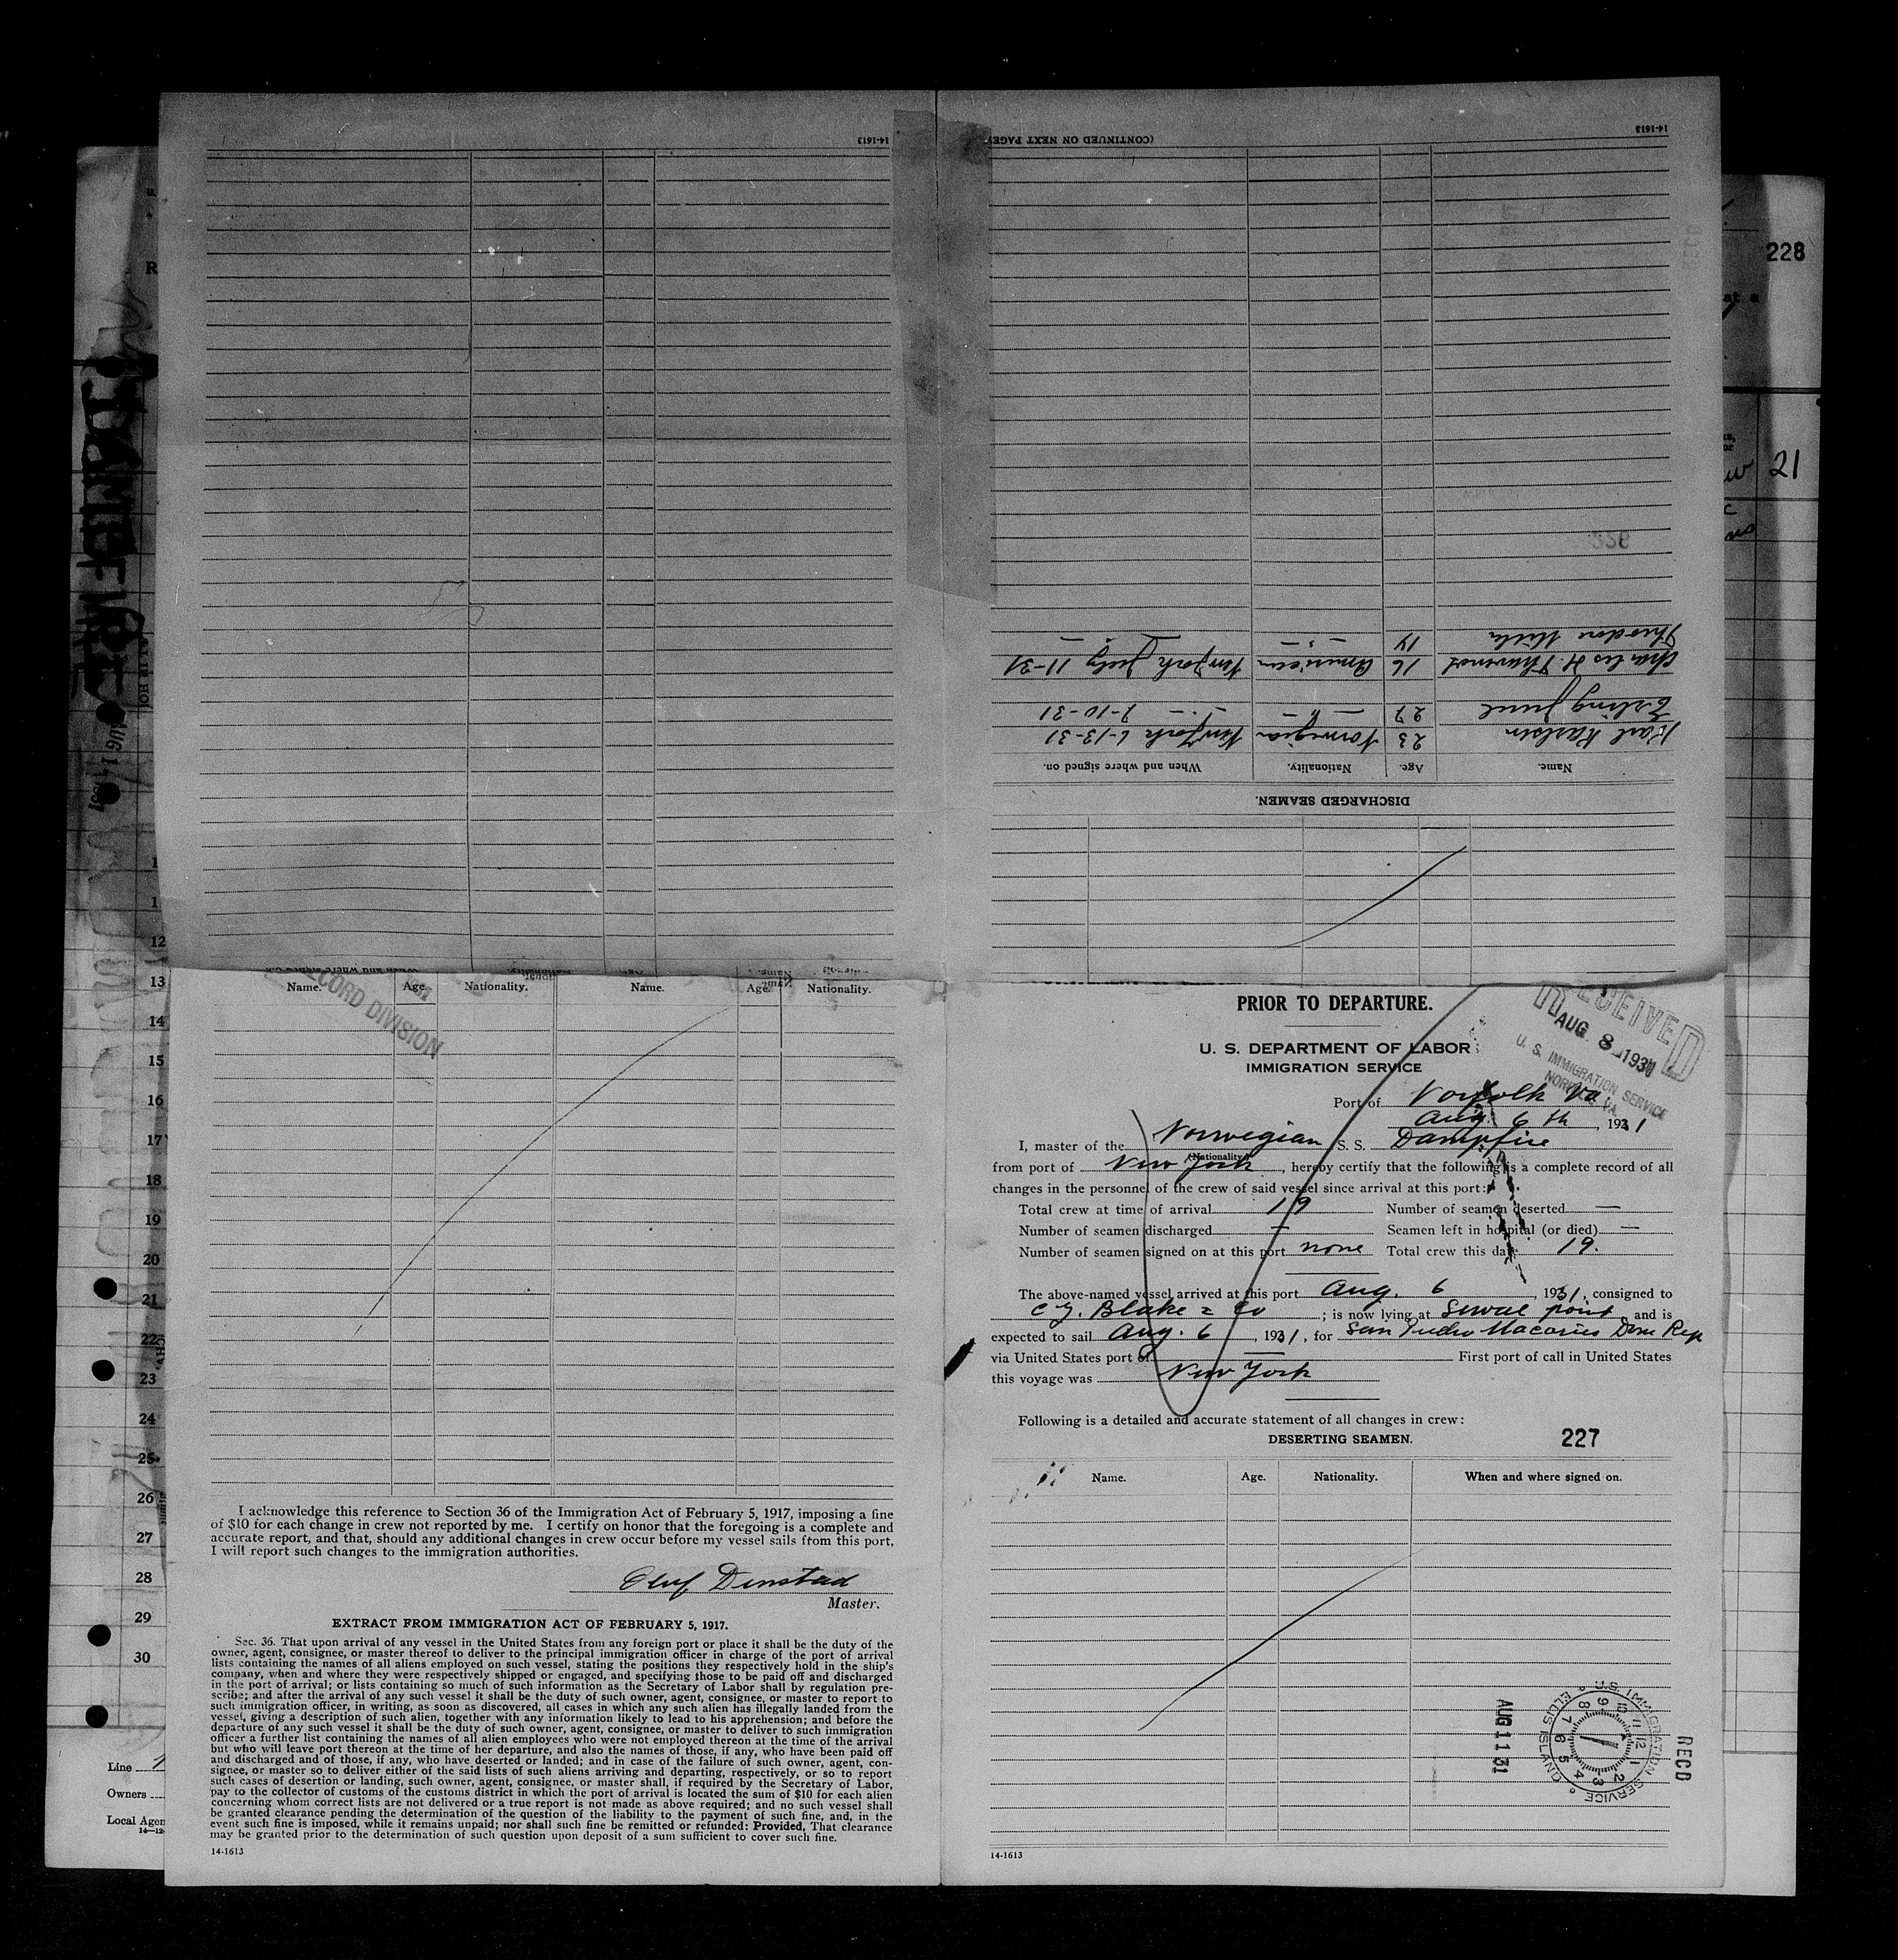 14-1613
(CONTINUED ON NEXT PAGE)
14-1613
228
21
DISCHARGED SEAMEN.
Name. Age. Nationality. When and where signed on.
Karl Karlsen 23 Norwegian New York 6-13-31
Erling Juul 27 — " — — " — 7-10-31
Charles H. 16 American New York July 11-31
Theodore 14 — " — — " —
RECORD DIVISION
Name. Age. Nationality. Name. Age. Nationality.
12
13
14
15
16
17
18
19
20
21
22
23
24
25
26
27
28
29
30
I acknowledge this reference to Section 36 of the Immigration Act of February 5, 1917, imposing a fine
of $10 for each change in crew not reported by me. I certify on honor that the foregoing is a complete and
accurate report, and that, should any additional changes in crew occur before my vessel sails from this port,
I will report such changes to the immigration authorities.
Oluf Denstad
Master.
EXTRACT FROM IMMIGRATION ACT OF FEBRUARY 5, 1917.
Sec. 36. That upon arrival of any vessel in the United States from any foreign port or place it shall be the duty of the
owner, agent, consignee, or master thereof to deliver to the principal immigration officer in charge of the port of arrival
lists containing the names of all aliens employed on such vessel, stating the positions they respectively hold in the ship's
company, when and where they were respectively shipped or engaged, and specifying those to be paid off and discharged
in the port of arrival; or lists containing so much of such information as the Secretary of Labor shall by regulation pre-
scribe; and after the arrival of any such vessel it shall be the duty of such owner, agent, consignee, or master to report to
such immigration officer, in writing, as soon as discovered, all cases in which any such alien has illegally landed from the
vessel, giving a description of such alien, together with any information likely to lead to his apprehension; and before the
departure of any such vessel it shall be the duty of such owner, agent, consignee, or master to deliver to such immigration
officer a further list containing the names of all alien employees who were not employed thereon at the time of the arrival
but who will leave port thereon at the time of her departure, and also the names of those, if any, who have been paid off
and discharged and of those, if any, who have deserted or landed; and in case of the failure of such owner, agent, con-
signee, or master so to deliver either of the said lists of such aliens arriving and departing, respectively, or so to report
such cases of desertion or landing, such owner, agent, consignee, or master shall, if required by the Secretary of Labor,
pay to the collector of customs of the customs district in which the port of arrival is located the sum of $10 for each alien
concerning whom correct lists are not delivered or a true report is not made as above required; and no such vessel shall
be granted clearance pending the determination of the question of the liability to the payment of such fine, and, in the
event such fine is imposed, while it remains unpaid; nor shall such fine be remitted or refunded: Provided, That clearance
may be granted prior to the determination of such question upon deposit of a sum sufficient to cover such fine.
14-1613
Line
Owners
Local Agen
PRIOR TO DEPARTURE.
U. S. DEPARTMENT OF LABOR
IMMIGRATION SERVICE
RECEIVED
AUG 8 1931
U. S. IMMIGRATION SERVICE
NORFOLK, VA.
Port of Norfolk Va.
Aug. 6 th, 1931
I, master of the Norwegian S. S. Dampfire
(Nationality)
from port of New York, hereby certify that the following is a complete record of all
changes in the personnel of the crew of said vessel since arrival at this port:
Total crew at time of arrival 19 Number of seamen deserted —
Number of seamen discharged — Seamen left in hospital (or died) —
Number of seamen signed on at this port none Total crew this day 19.
The above-named vessel arrived at this port Aug. 6, 1931, consigned to
C. G. Blake & Co; is now lying at Sewal point, and is
expected to sail Aug. 6, 1931, for San Pedro Macories Dom Rep
via United States port of — First port of call in United States
this voyage was New York
Following is a detailed and accurate statement of all changes in crew:
DESERTING SEAMEN.
227
Name. Age. Nationality. When and where signed on.
RECD
U.S. IMMIGRATION SERVICE
ELLIS ISLAND
AUG 11 31
14-1613